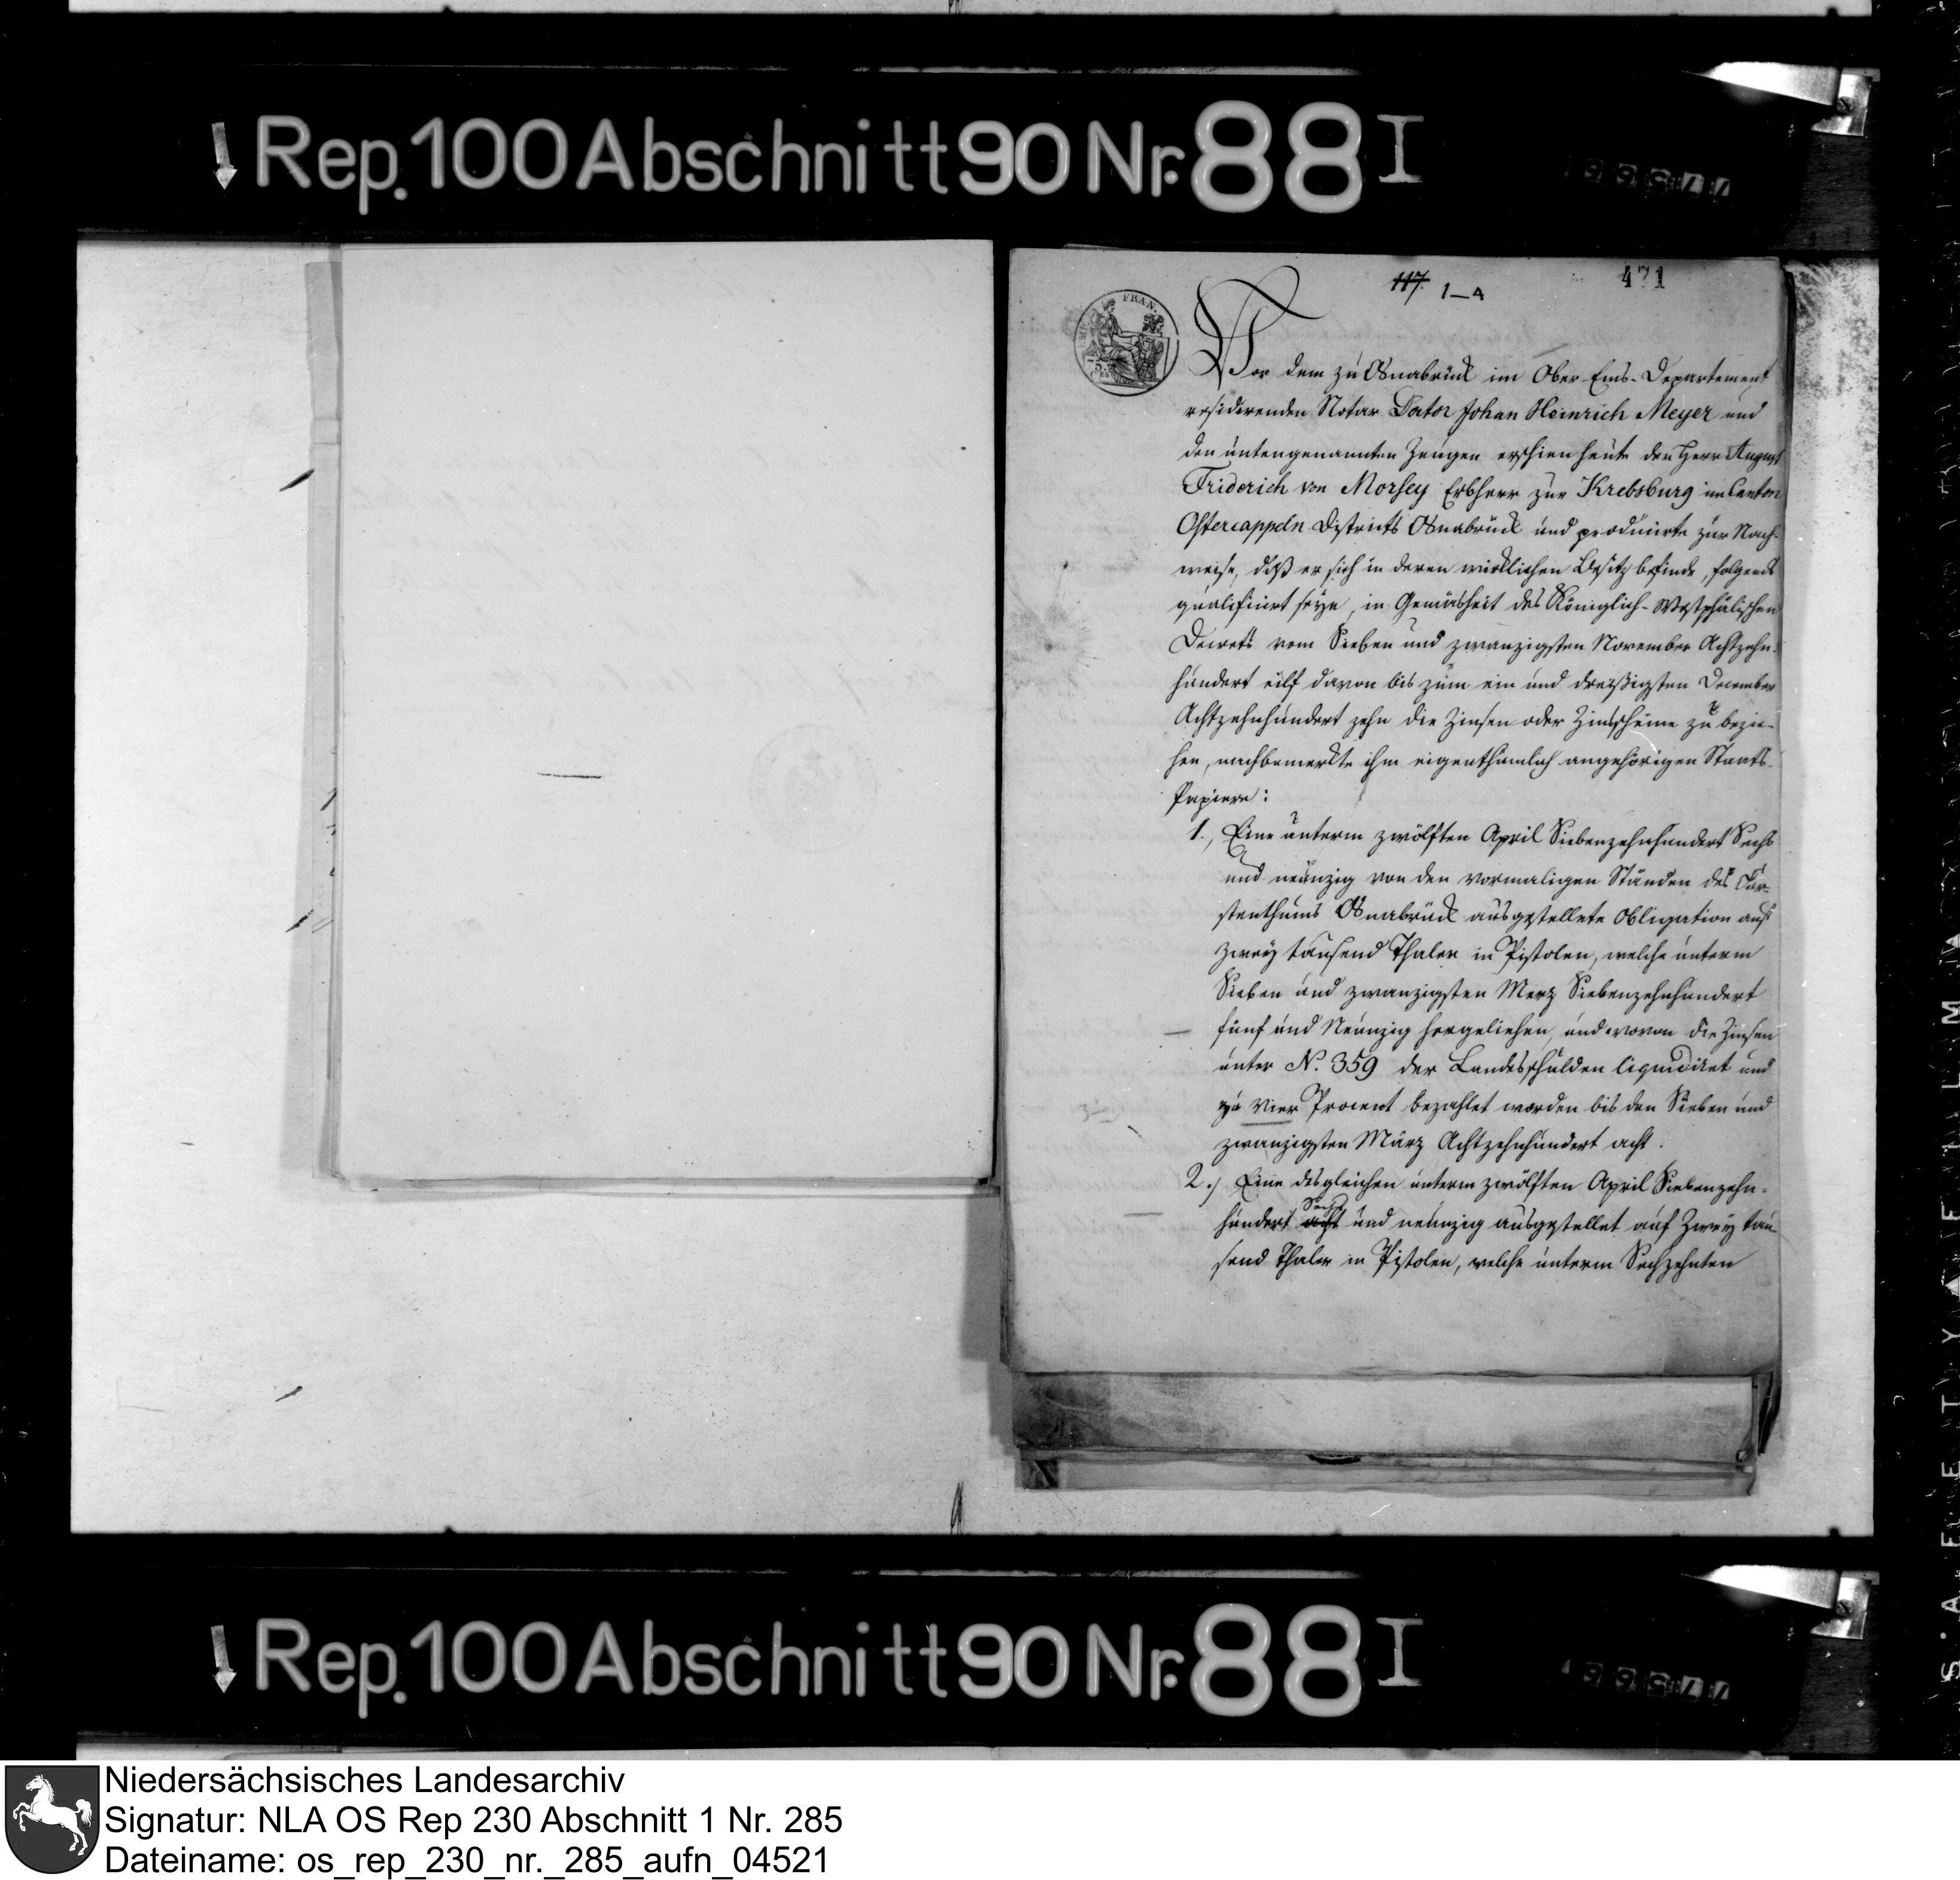 Rep. 100 Abschnitt 90 Nr. 88 I
117. 1–4
471
FRAN.
Vor dem zu Osnabrück im Ober-Ems-Departement
residirenden Notar Doctor Johan Heinrich Meyer und
den untengenannten Zeugen erschien heute der Herr August
Friderich von Morsey Erbherr zur Krebsburg im Canton
Ostercappeln Districts Osnabrück und producirte zur Nach-
weise, daß er sich in deren wirklichen Besitz befinde, folgends
qualificirt seye, in Gemäsheit des Königlich-Westphälischen
Decrets vom Sieben und zwanzigsten November Achtzehn-
hundert eilf davon bis zum ein und dreißigsten December
Achtzehnhundert zehn die Zinsen oder Zinsscheine zu bezie-
hen, nachbemerkte ihm eigenthümlich angehörigen Staats-
Papiere:
1., Eine unterm zwölften April Siebenzehnhundert Sechs
und neunzig von den vormaligen Ständen des Für-
stenthums Osnabrück ausgestellete Obligation auf
zwey tausend Thaler in Pistolen, welche unterm
Sieben und zwanzigsten Merz Siebenzehnhundert
fünf und Neunzig hergeliehen, und wovon die Zinsen
unter N. 359 der Landesschulden liquidiret und
zu Vier Procent bezahlet worden bis den Sieben und
zwanzigsten März Achtzehnhundert acht.
2.) Eine desgleichen unterm zwölften April Siebenzehn-
hundert acht Sechs und neunzig ausgestellet auf Zwey tau-
send Thaler in Pistolen, welche unterm Sechzehnten
Rep. 100 Abschnitt 90 Nr. 88 I
Niedersächsisches Landesarchiv
Signatur: NLA OS Rep 230 Abschnitt 1 Nr. 285
Dateiname: os_rep_230_nr._285_aufn_04521